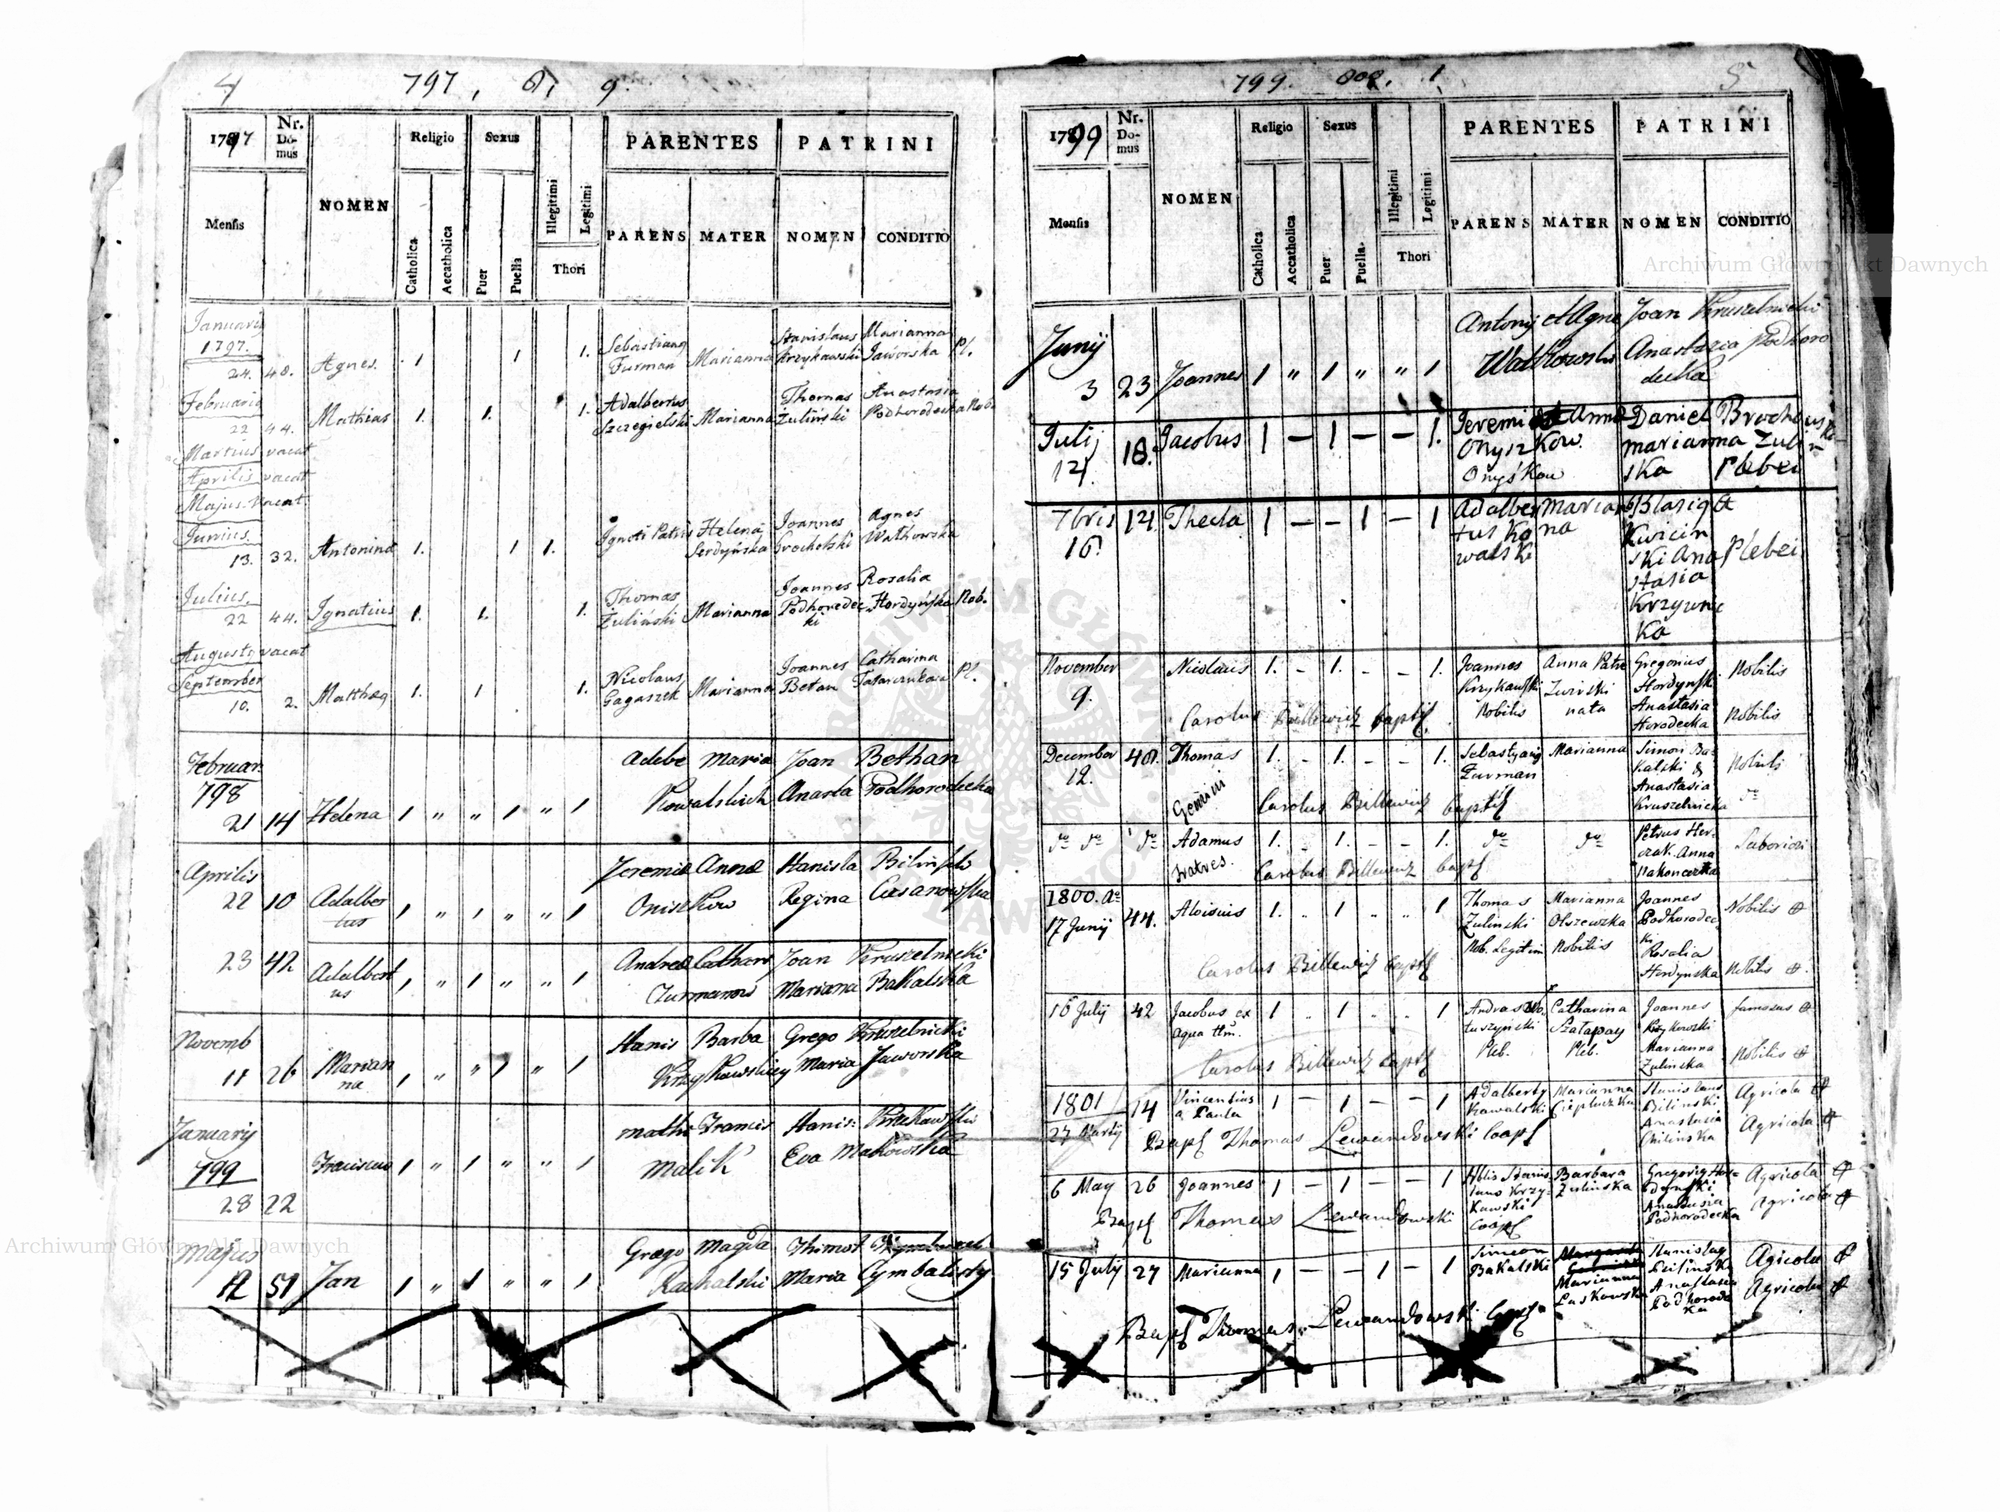 4
797, 8, 9.
1797
Nr. Domus
NOMEN
Religio
Sexus
PARENTES
PATRINI
Mensis
Catholica
Accatholica
Puer
Puella
Illegitimi
Legitimi
Thori
PARENS
MATER
NOMEN
CONDITIO
Januari
1797.
24. 48. Agnes. 1 1 1.
Sebastianus Furman
Marianna
Stanislaus Krzykawski
Marianna Jaworska
Pl.
Februarii
22 44. Mathias 1. 1. 1.
Adalbertus Szczegielski
Marianna
Thomas Zuliński
Anastasia Podhorodecka
Martius vacat
Aprilis vacat
Majus vacat
Junius.
13. 32. Antonina 1. 1 1.
Ignoti Patris
Helena Serdyńska
Joannes Grocholski
Agnes Watkowska
Julius.
22 44. Ignatius 1. 1. 1.
Thomas Żuliński
Marianna
Joannes Podhorodecki
Rosalia Hordyńska
Nob.
Augusti vacat
September
10. 2. Matthæg 1. 1 1.
Nicolaus Gagaszek
Marianna
Joannes Betan
Catharina
Pl.
Februar
798
21 14 Helena 1 " " 1 " 1
Adelbe Maria
Kowalskich
Joan Bethan
Anasta Podhorodecka
Aprilis
22 10 Adalbertus 1 " 1 " " 1
Jeremiæ Annæ
Oniszkow
Stanisla Bilinski
Regina
23 42 Adalbertus 1 " 1 " " 1
Andreæ Cathari
Furmanow
Joan Kruszelnicki
Mariana Bakalska
Novemb
11 26 Marianna 1 " " 1 " 1
Stanis Barba
Krzykawskiey
Grego Kruszelnicki
Maria Jaworska
January
799
28 22 Franciscus 1 " 1 " " 1
Mathi Francis
Malik
Stanis:
Eva Makowska
Majus
12 51 Jan 1 " 1 " " 1
Grego Magda
Rachalski
Thimot
Maria Cymbalisty
799. 800. 1.
5
1799
Nr. Domus
NOMEN
Religio
Sexus
PARENTES
PATRINI
Mensis
Catholica
Accatholica
Puer
Puella.
Illegitimi
Legitimi
Thori
PARENS
MATER
NOMEN
CONDITIO
Junij
3 23 Joannes 1 " 1 " " 1
Antonij et Agne
Watkowski
Joan Kruszelnicki
Anastazia Podhorodecka
Julij
12. 18. Jacobus 1 – 1 – – 1.
Jeremi et Anna
Onyszkow.
Onyśkow
Daniel
Marianna Zulinska
Plebei
7bris
16. 14. Thecla 1 – – 1 – 1
Adalbertus Kowalski
Marianna
Blasig et
Kwicinski Anastasia
Krzywicka
Plebei
November
9. Nicolaus 1. – 1. – – 1.
Joannes Krzykawski Nobilis
Anna
nata
Gregorius Hordynski
Anastasia Horodecka
Nobilis
Nobilis
Carolus Billewicz bapt.
December
12. 48. Thomas 1. – 1. – – 1.
Gemini
Sebastyang Furman
Marianna
Simon Bakalski &
Anastasia Kruszelnicka
Nobilis
do
Carolus Billewicz baptis
do do do Adamus 1. – 1. – – 1.
Fratres.
do do
Petrus
Anna
Laboriosi
Carolus Billewicz bapt
1800. Ao
17 Junij 44. Aloisius 1. . 1 . . 1
Thomas Zulinski
Nob. Legitim
Marianna Olszewska
Nobilis
Joannes Podhorodecki
Rosalia Hordynska
Nobilis
Nobilis
Carolus Billewicz bapt
16 July 42 Jacobus ex aqua ttm. 1 . . 1 . . 1
Pleb.
Catharina Szałapay
Pleb.
Joannes Krzykowski
Marianna Zulinska
famosus
Nobilis
Carolus Billewicz bapt
1801
27 Marty 14 Vincentius a Paula 1 – 1 – – 1
Adalberty Kawalski
Marianna Cieplucka
Stanislaus Bilinski
Anastasia
Agricola
Agricola
Bapt Thomas Lewandowski Coap
6 May 26 Joannes 1 – 1 – – 1
Krzykawski
Barbara Zulinska
Gregorig Hordynski
Anastasia Podhorodecka
Agricola
Agricola
Bapt Thomas Lewandowski Coap
15 July 27 Marianna 1 – – 1 – 1
Simeon Bakalski
Marianna Laskowska
Stanislag Bilinski
Anastasia Podhorodecka
Agricola
Agricola
Bapt Thomas Lewandowski Coap
Archiwum Główne Akt Dawnych
Archiwum Główne Akt Dawnych
ARCHIWUM GŁÓWNE AKT DAWNYCH